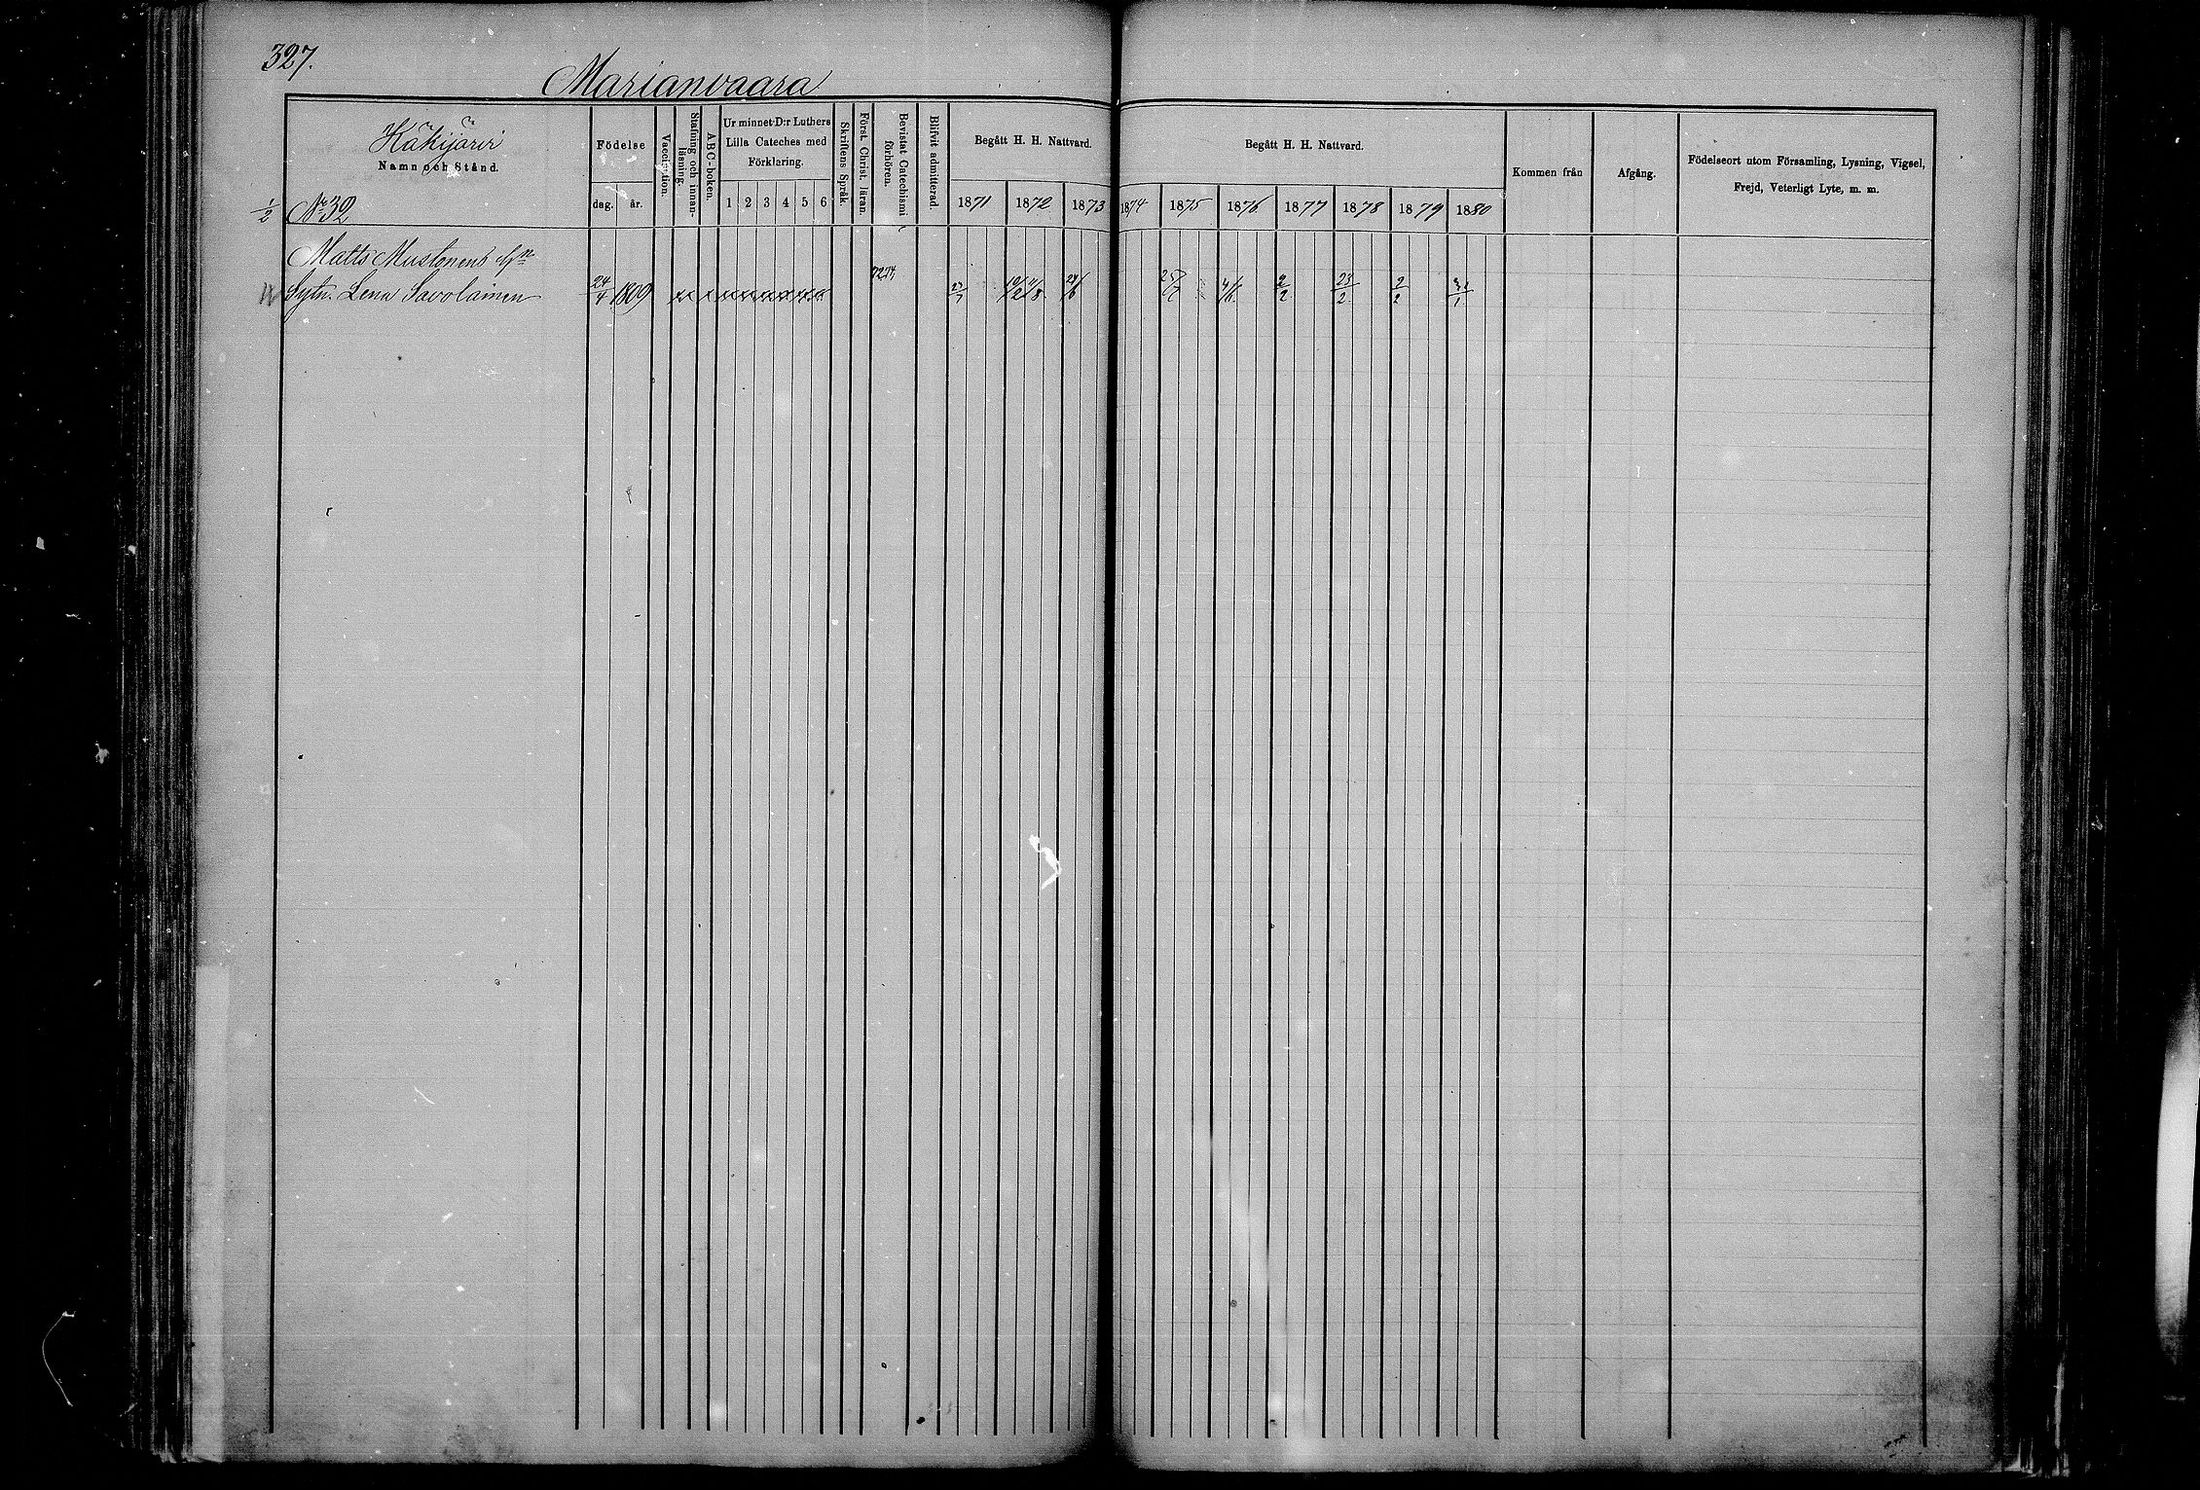 327.
Marianvaara
Häkijärvi
Namn och Stånd.
1/2 No 32
Födelse
dag. år.
Vaccination.
Stafning och innan-
läsning.
ABC-boken.
Ur minnet D:r Luthers
Lilla Cateches med
Förklaring.
1 2 3 4 5 6
Skriftens Språk.
Först. Christ. läran.
Bevistat Catechismi
förhören.
Blifvit admitterad.
Begått H. H. Nattvard.
1871 1872 1873
Begått H. H. Nattvard.
1874 1875 1876 1877 1878 1879 1880
Kommen från
Afgång.
Födelseort utom Församling, Lysning, Vigsel,
Frejd, Veterligt Lyte, m. m.
Matts Mustonens
Sytn. Lena Savolainen 24/4 1809 24/6 2/2 23/2 2/2